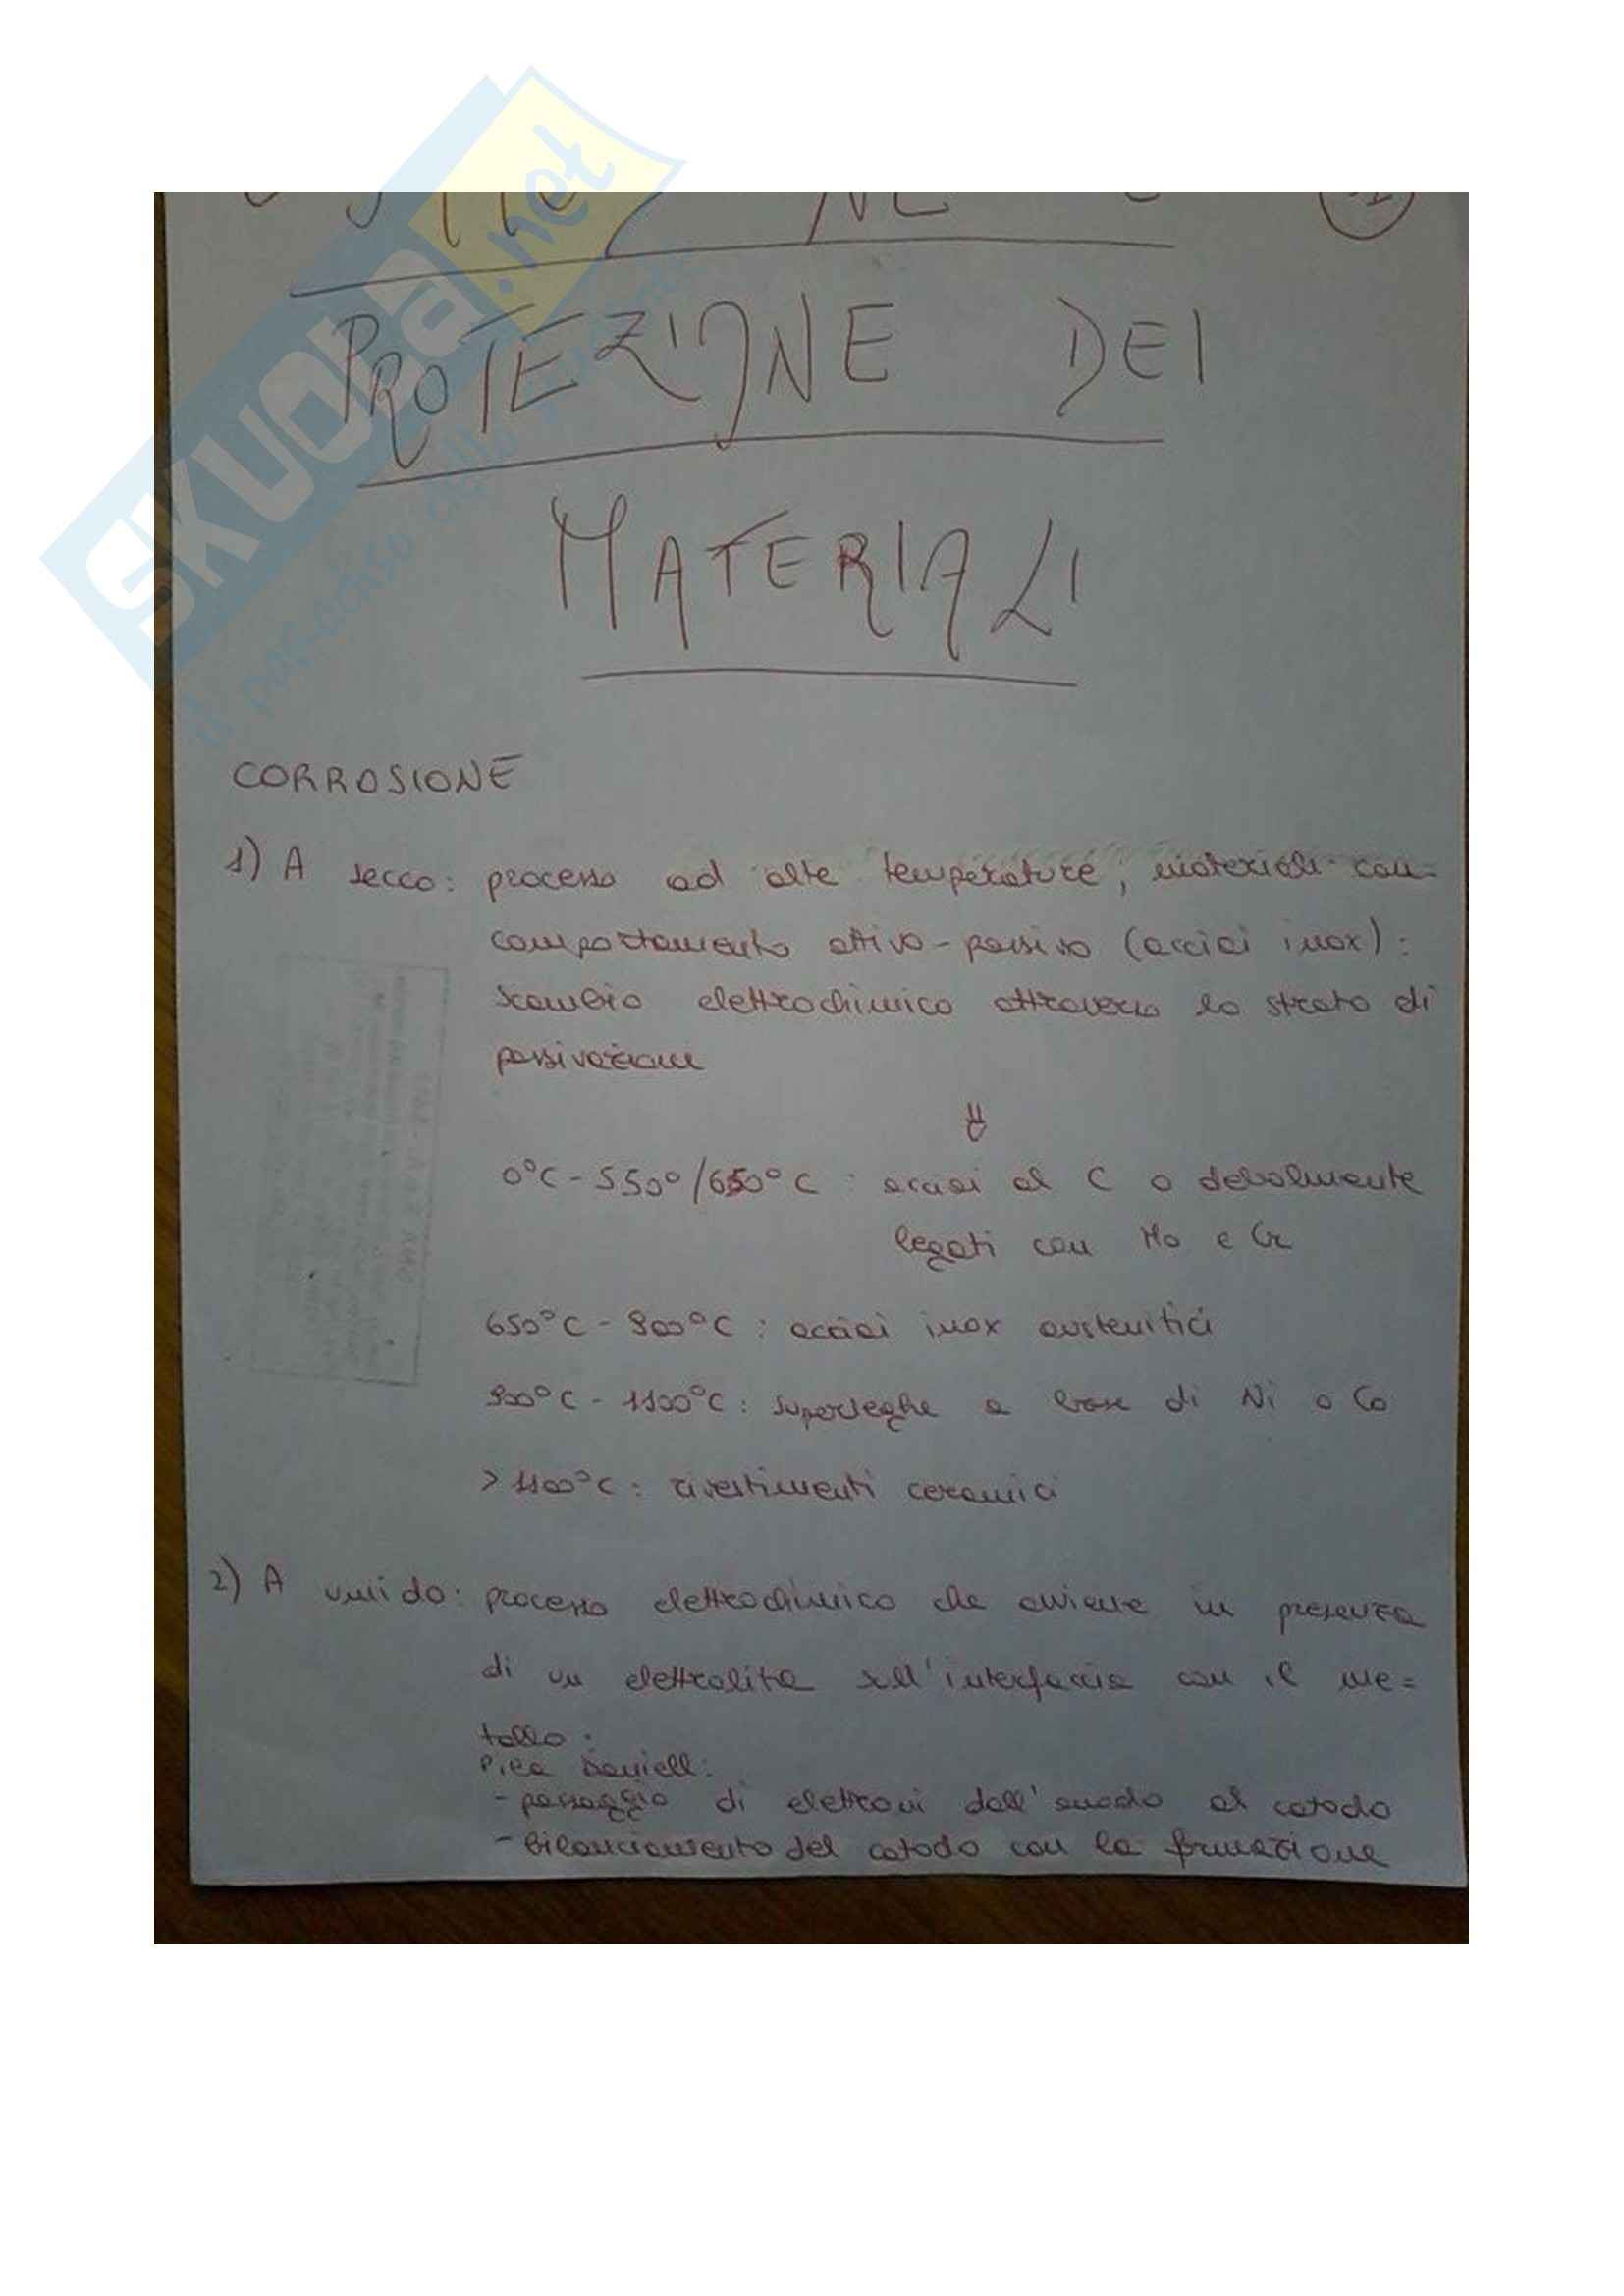 PROTEZIONE DEI
MATERIALI
CORROSIONE
1) A secco: processo ad alte temperature, materiali con
comportamento attivo-passivo (acciai inox):
scambio elettrochimico attraverso lo strato di
passivazione
⇓
0°C - 550°/650°C : acciai al C o debolmente
legati con Mo e Cr
650°C - 900°C : acciai inox austenitici
900°C - 1100°C : superleghe a base di Ni o Co
> 1100°C : rivestimenti ceramici
2) A umido: processo elettrochimico che avviene in presenza
di un elettrolita sull'interfaccia con il me=
tallo.
Pila Daniell:
- passaggio di elettroni dall'anodo al catodo
- bilanciamento del catodo con la formazione
SKUOLA.net
il paradiso dello studente